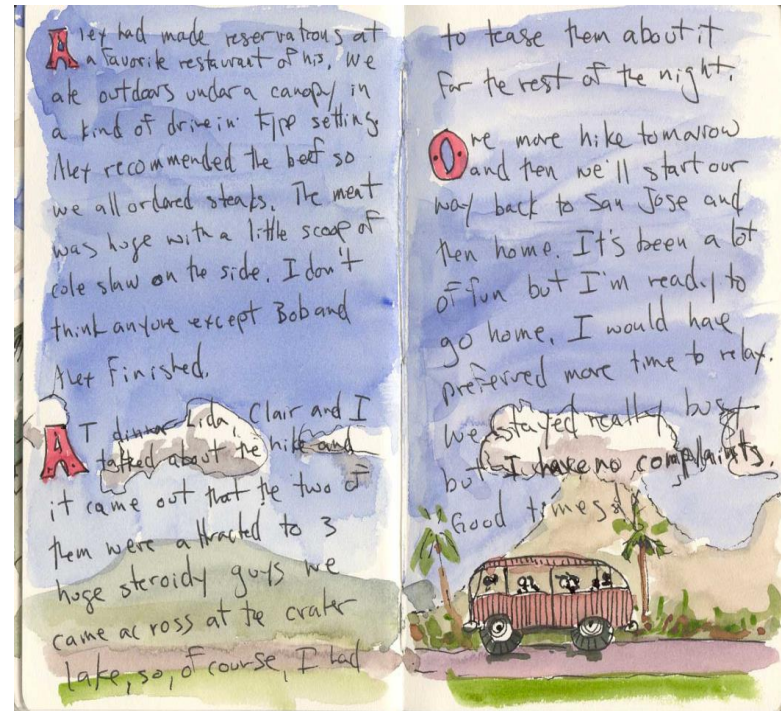 Alex had made reservations at
a favorite restaurant of his. We
ate outdoors under a canopy in
a kind of drive in type setting
Alex recommended the beef so
we all ordered steaks. The meat
was huge with a little scoop of
cole slaw on the side. I don't
think anyone except Bob and
Alex Finished.
AT dinner Lida, Clair and I
talked about the hike and
it came out that the two of
them were attracted to 3
huge steroidy guys we
came across at the crater
lake, so, of course, I had
to tease them about it
for the rest of the night.
One more hike tomarrow
and then we'll start our
way back to San Jose and
then home. It's been a lot
of fun but I'm ready to
go home. I would have
preferred more time to relax.
We stayed really busy
but I have no complaints.
Good times!